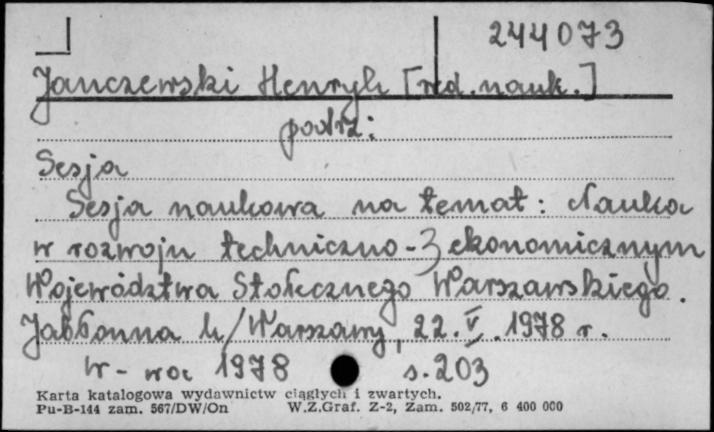 244073
Janczewski Henryk [red. nauk.]
podrz:
Sesja
Sesja naukowa na temat: Nauka
w rozwoju techniczno-ekonomicznym
Województwa Stołecznego Warszawskiego.
Jabłonna k/Warszawy, 22.V.1978 r.
W-wa 1978 s. 203
Karta katalogowa wydawnictw ciągłych i zwartych.
Pu-B-144 zam. 567/DW/On W.Z.Graf. Z-2, Zam. 502/77, 6 400 000